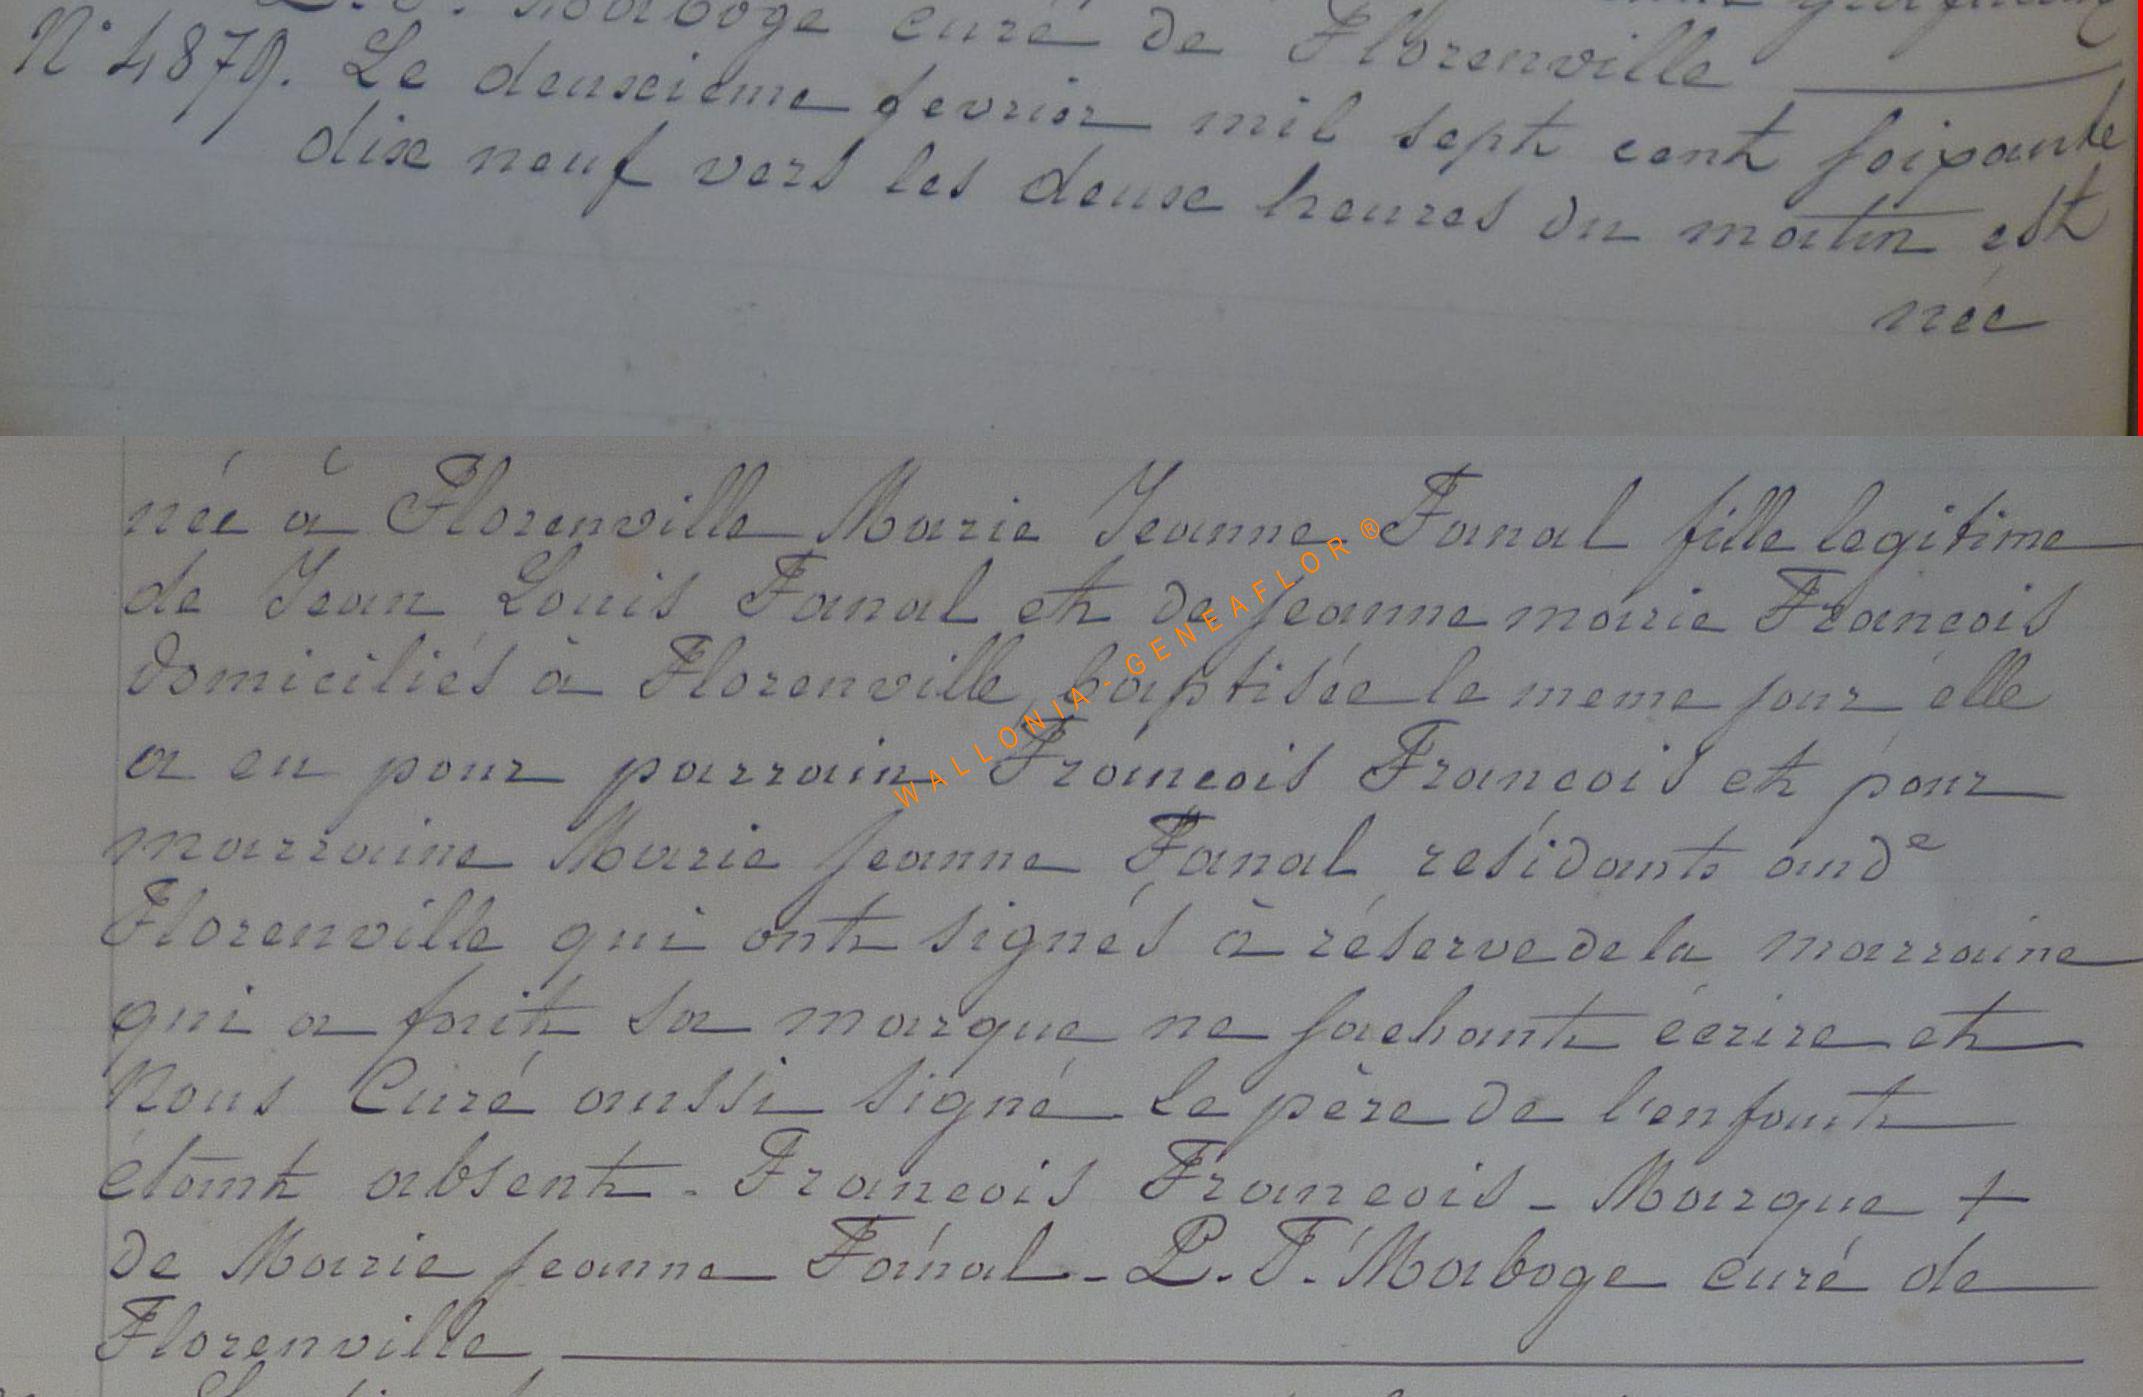 Maboge curé de Florenville
N° 4879. Le deuxcième fevrier mil sept cent soixante
dix neuf vers les deux heures du matin est
née
née à Florenville Marie Jeanne Fanal fille legitime
de Jean Louis Fanal et de jeanne marie Francois
domiciliés à Florenville, baptisée le meme jour elle
a eu pour parrain Francois Francois et pour
marraine Marie jeanne Fanal residants aud^e
Florenville qui ont signés à réserve de la marraine
qui a fait sa marque ne sachant écrire et
Nous Curé aussi signé Le père de l'enfant
étant absent - Francois Francois - Marque +
de Marie jeanne Fanal - L. F. Maboge curé de
Florenville
WALLONIA-GENEAFLOR ®